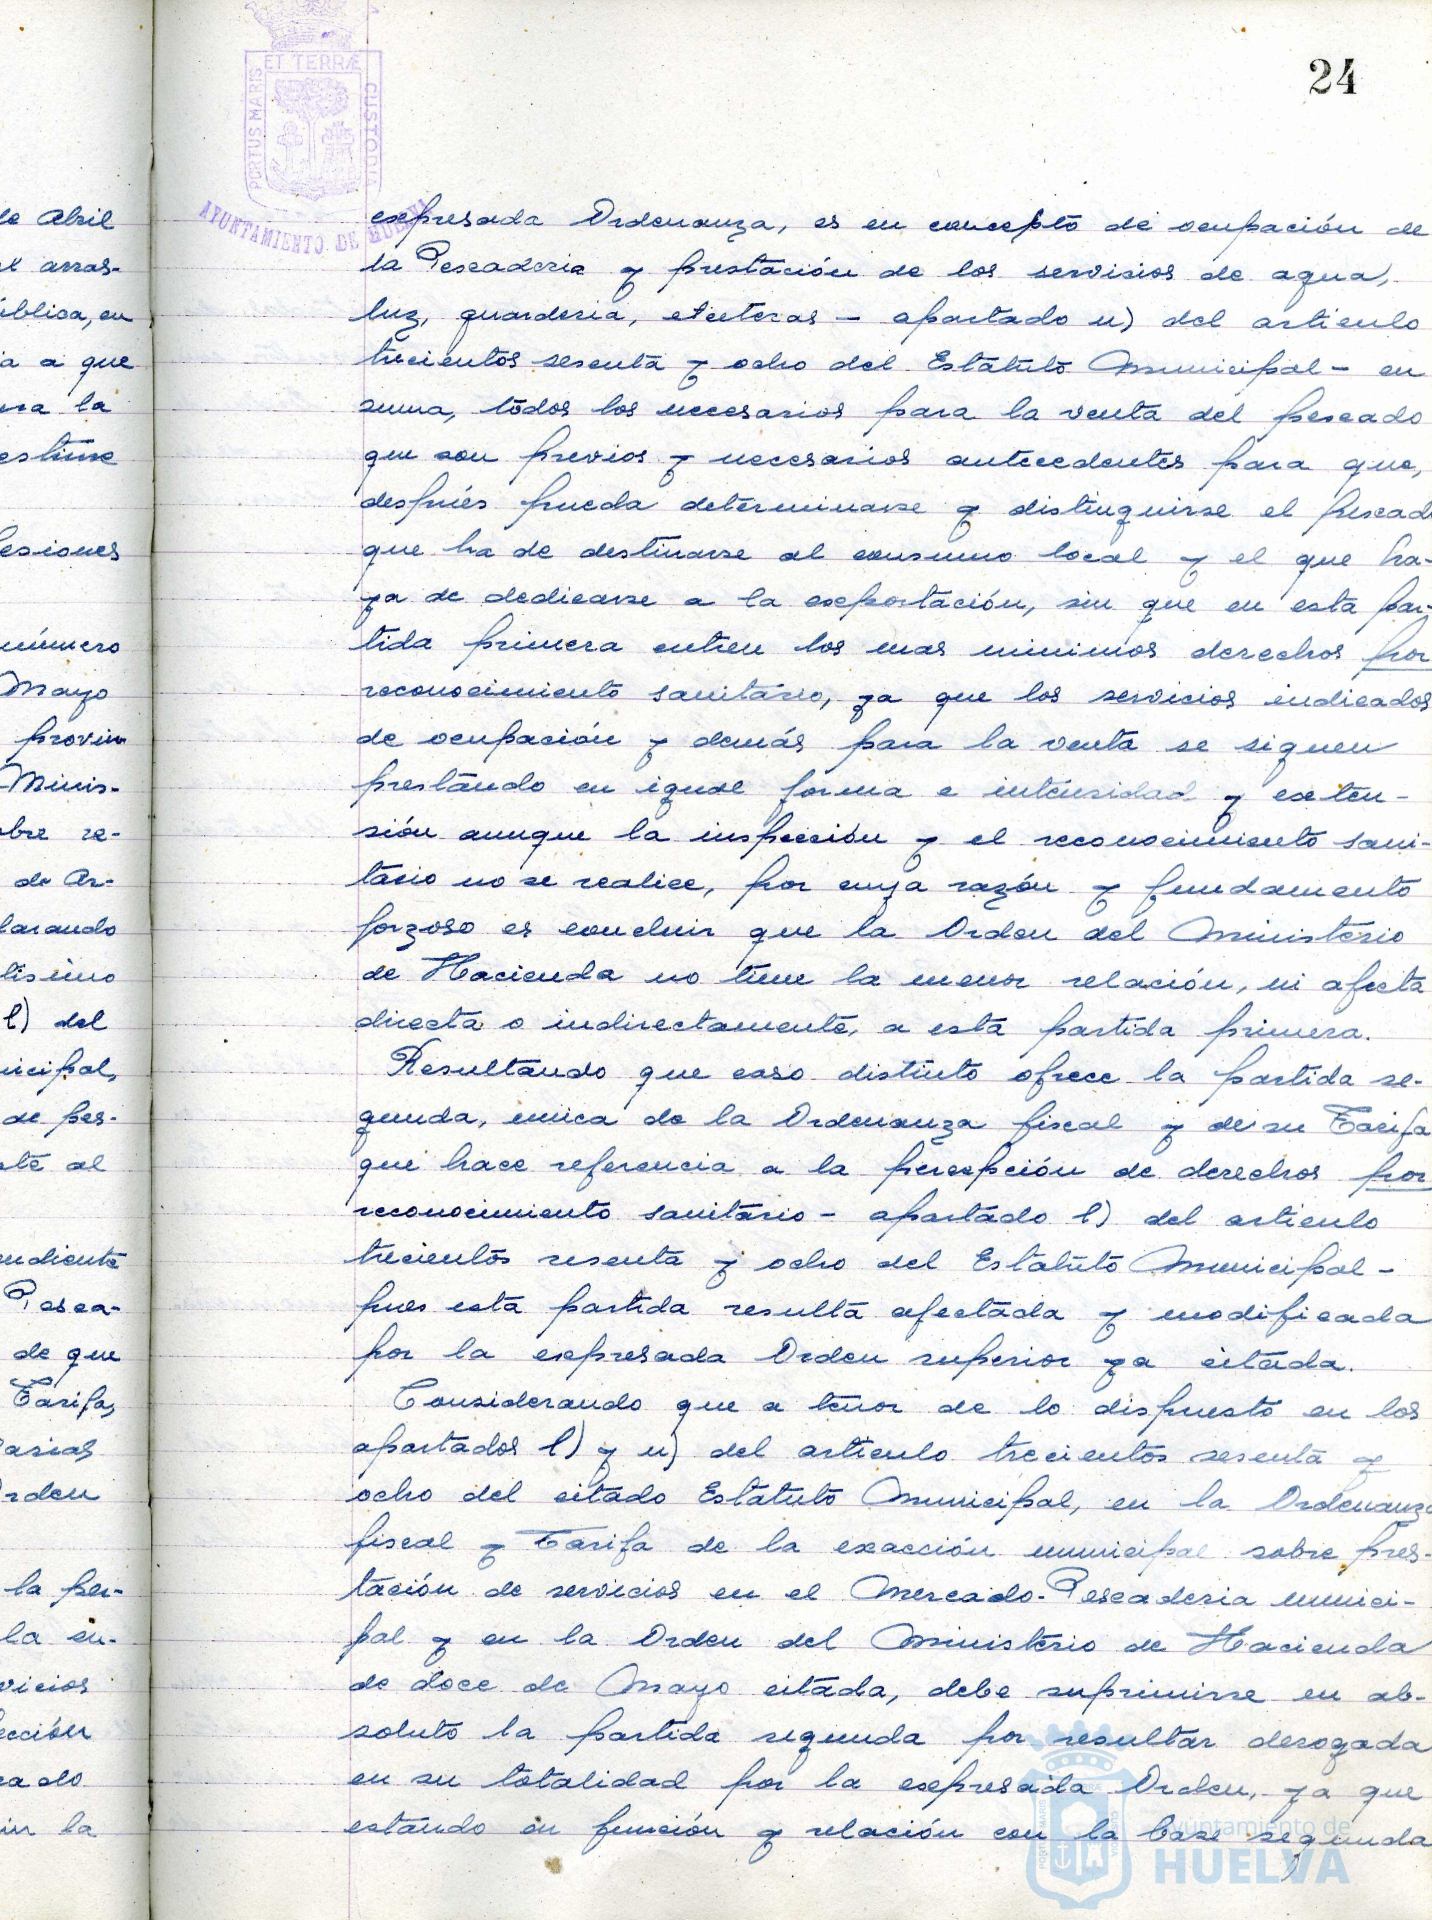 ET TERRÆ
PORTUS MARIS
CUSTODIA
AYUNTAMIENTO DE HUELVA
24
de Abril
arras-
ública, en
a a que
ra la
estime
sesiones
número
Mayo
provin
Minis-
bre re-
de Ar-
larando
lisimo
l) del
nicipal,
de pes-
te al
endiente
Pesca-
de que
Tarifa,
arias
rden
la per-
la en-
vicios
ección
cado
in la
expresada Ordenanza, es en concepto de ocupación de
la Pescaderia y prestación de los servicios de agua,
luz, guarderia, etcéteras - apartado u) del artículo
trecientos sesenta y ocho del Estatuto Municipal - en
suma, todos los necesarios para la venta del pescado
que son previos y necesarios antecedentes para que,
después pueda determinarse y distinguirse el pescado
que ha de destinarse al consumo local y el que ha-
ya de dedicarse a la exportación, sin que en esta par-
tida primera entren los mas minimos derechos por
reconocimiento sanitario, ya que los servicios indicados
de ocupación y demás para la venta se siguen
prestando en igual forma e intensidad y exten-
sión aunque la inspección y el reconocimiento sani-
tario no se realice, por cuya razón y fundamento
forzoso es concluir que la Orden del Ministerio
de Hacienda no tiene la menor relación, ni afecta
directa o indirectamente, a esta partida primera.
Resultando que caso distinto ofrece la partida se-
gunda, unica de la Ordenanza fiscal y de su Tarifa
que hace referencia a la percepción de derechos por
reconocimiento sanitario - apartado l) del articulo
trecientos sesenta y ocho del Estatuto Municipal -
pues esta partida resulta afectada y modificada
por la expresada Orden superior ya citada.
Considerando que a tenor de lo dispuesto en los
apartados l) y u) del articulo trecientos sesenta y
ocho del citado Estatuto Municipal, en la Ordenanza
fiscal y Tarifa de la exacción municipal sobre pres-
tación de servicios en el Mercado-Pescaderia munici-
pal y en la Orden del Ministerio de Hacienda
de doce de Mayo citada, debe suprimirse en ab-
soluto la partida segunda por resultar derogada
en su totalidad por la expresada Orden, ya que
estando en función y relación con la base segunda
Ayuntamiento de
HUELVA